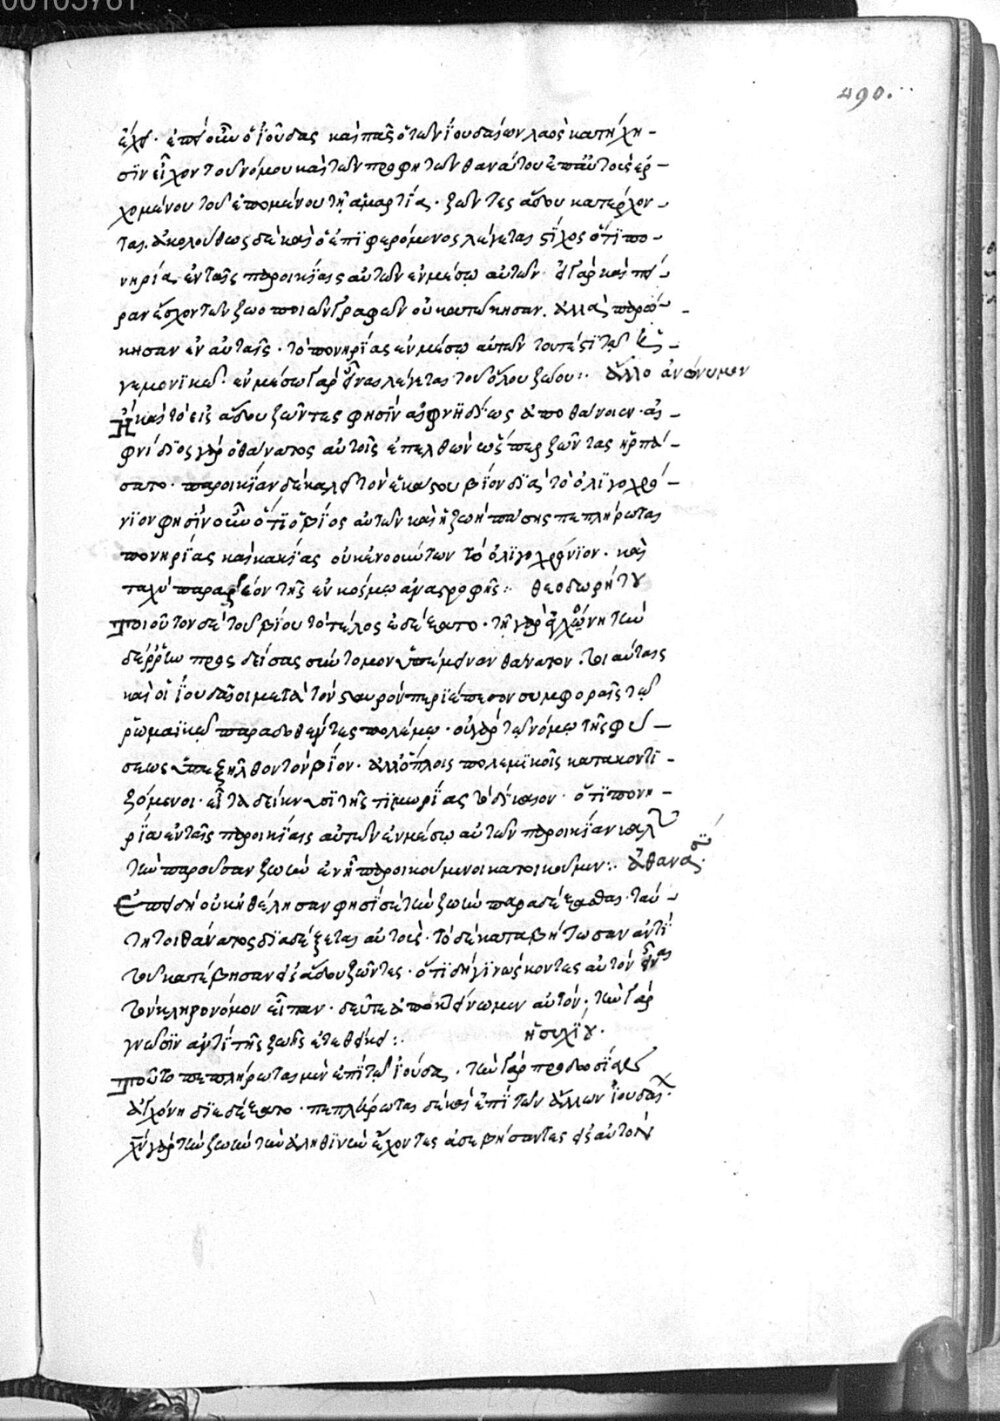 00105761
490.
ἔχει · ἐπεὶ οὖν ὁ Ἰούδας καὶ πᾶς ὁ τῶν Ἰουδαίων λαὸς κατήχη-
σιν εἶχον τοῦ νόμου καὶ τῶν προφητῶν θανάτου ἐπ' αὐτοῖς ἐρ-
χομένου τοῦ ἑπομένου τῇ ἁμαρτίᾳ · ζῶντες ᾅδου κατέρχον-
ται. ἀκολούθως δὲ καὶ ὁ ἐπιφερόμενος λέγεται στίχος ὅτι πο-
νηρία ἐν ταῖς παροικίαις αὐτῶν ἐν μέσῳ αὐτῶν · εἰ γὰρ καὶ πεῖ-
ραν ἔσχον τῶν ζωοποιῶν γραφῶν οὐ κατῴκησαν. ἀλλὰ παρῴ-
κησαν ἐν αὐταῖς · τὸ πονηρίας ἐν μέσῳ αὐτῶν τουτέστι τῷ
γεμονικῷ · ἐν μέσῳ γὰρ εἶναι λέγεται τοῦ ὅλου ζώου :· ἄλλο ἀνώνυμον
Ἢ καὶ τὸ εἰς ᾅδου ζῶντες φησὶν αἰφνηδίως ἀποθάνοιεν · αἰ-
φνίδιος γὰρ ὁ θάνατος αὐτοῖς ἐπελθὼν ὥσπερ ζῶντας ἥρπα-
σατο · παροικίαν δὲ καλεῖ τὸν ἑκάστου βίον διὰ τὸ ὀλιγοχρό-
νιον φησὶν οὖν ὅτι ὁ βίος αὐτῶν καὶ ἡ ζωὴ πάσης πεπλήρωται
πονηρίας καὶ κακίας οὐκ ἐννοούντων τὸ ὀλιγοχρόνιον · καὶ
ταχὺ παραρρέον τῆς ἐν κόσμῳ ἀναστροφῆς :· θεοδωρήτου
Τοιοῦτον δὲ τοῦ βίου τὸ τέλος ἐδέξατο · τῇ γὰρ ἀγχόνῃ τὴν
δέρρην προσδείσας σύντομον ὑπέμεινεν θάνατον · τοιαύταις
καὶ οἱ Ἰουδαῖοι μετὰ τὸν σταυρὸν περιέπεσον συμφοραῖς τῷ
ῥωμαϊκῷ παραδοθέντες πολέμῳ · οὐ γὰρ τῷ νόμῳ τῆς φύ-
σεως ὑπεξῆλθον τὸν βίον · ἀλλ' ὅπλοις πολεμικοῖς κατακοντι-
ζόμενοι · εἶτα δείκνυσι τῆς τιμωρίας τὸ δίκαιον · ὅτι πονη-
ρία ἐν ταῖς παροικίαις αὐτῶν ἐν μέσῳ αὐτῶν παροικίαν καλεῖ
τὴν παροῦσαν ζωὴν ἐν ᾗ παροικούμενοι κατοικοῦμεν :· ἀθανασίου
Ἐπειδὴ οὐκ ἠθέλησαν φησί σε τὴν ζωὴν παραδέξασθαι · ταύ-
τῃ τοι θάνατος διαδέξεται αὐτούς · τὸ δὲ καταβήτωσαν ἀντὶ
τοῦ κατέβησαν εἰς ᾅδου ζῶντες · ὅτι δὴ γινώσκοντες αὐτὸν εἶναι
τὸν κληρονόμον εἶπαν · δεῦτε ἀποκτείνωμεν αὐτόν · τὴν γὰρ
γνῶσιν ἀντὶ τῆς ζωῆς ἐτεθείκει :· ἡσυχίου ·
Τοῦτο πεπλήρωται μὲν ἐπὶ τῷ Ἰούδᾳ · τὴν γὰρ προδοσίαν
ἀγχόνη διεδέξατο · πεπλήρωται δὲ καὶ ἐπὶ τῶν ἄλλων Ἰουδαίων ·
χν γὰρ τὴν ζωὴν τὴν ἀληθινὴν ἔχοντες ἀσεβήσαντες εἰς αὐτὸν